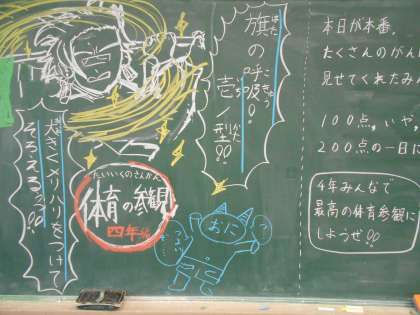 本日が本番。
たくさんのがん
見せてくれたみ
100点。いや、
200点の一日に
4年みんなで
最高の体育参観に
しようぜ!!
旗の呼吸!!
はた
こきゅう
壱ノ型!!
いち
かた
大きくメリハリをつけて
そろえるッ!!
たいいくのさんかん
体育の参観
四年
おに